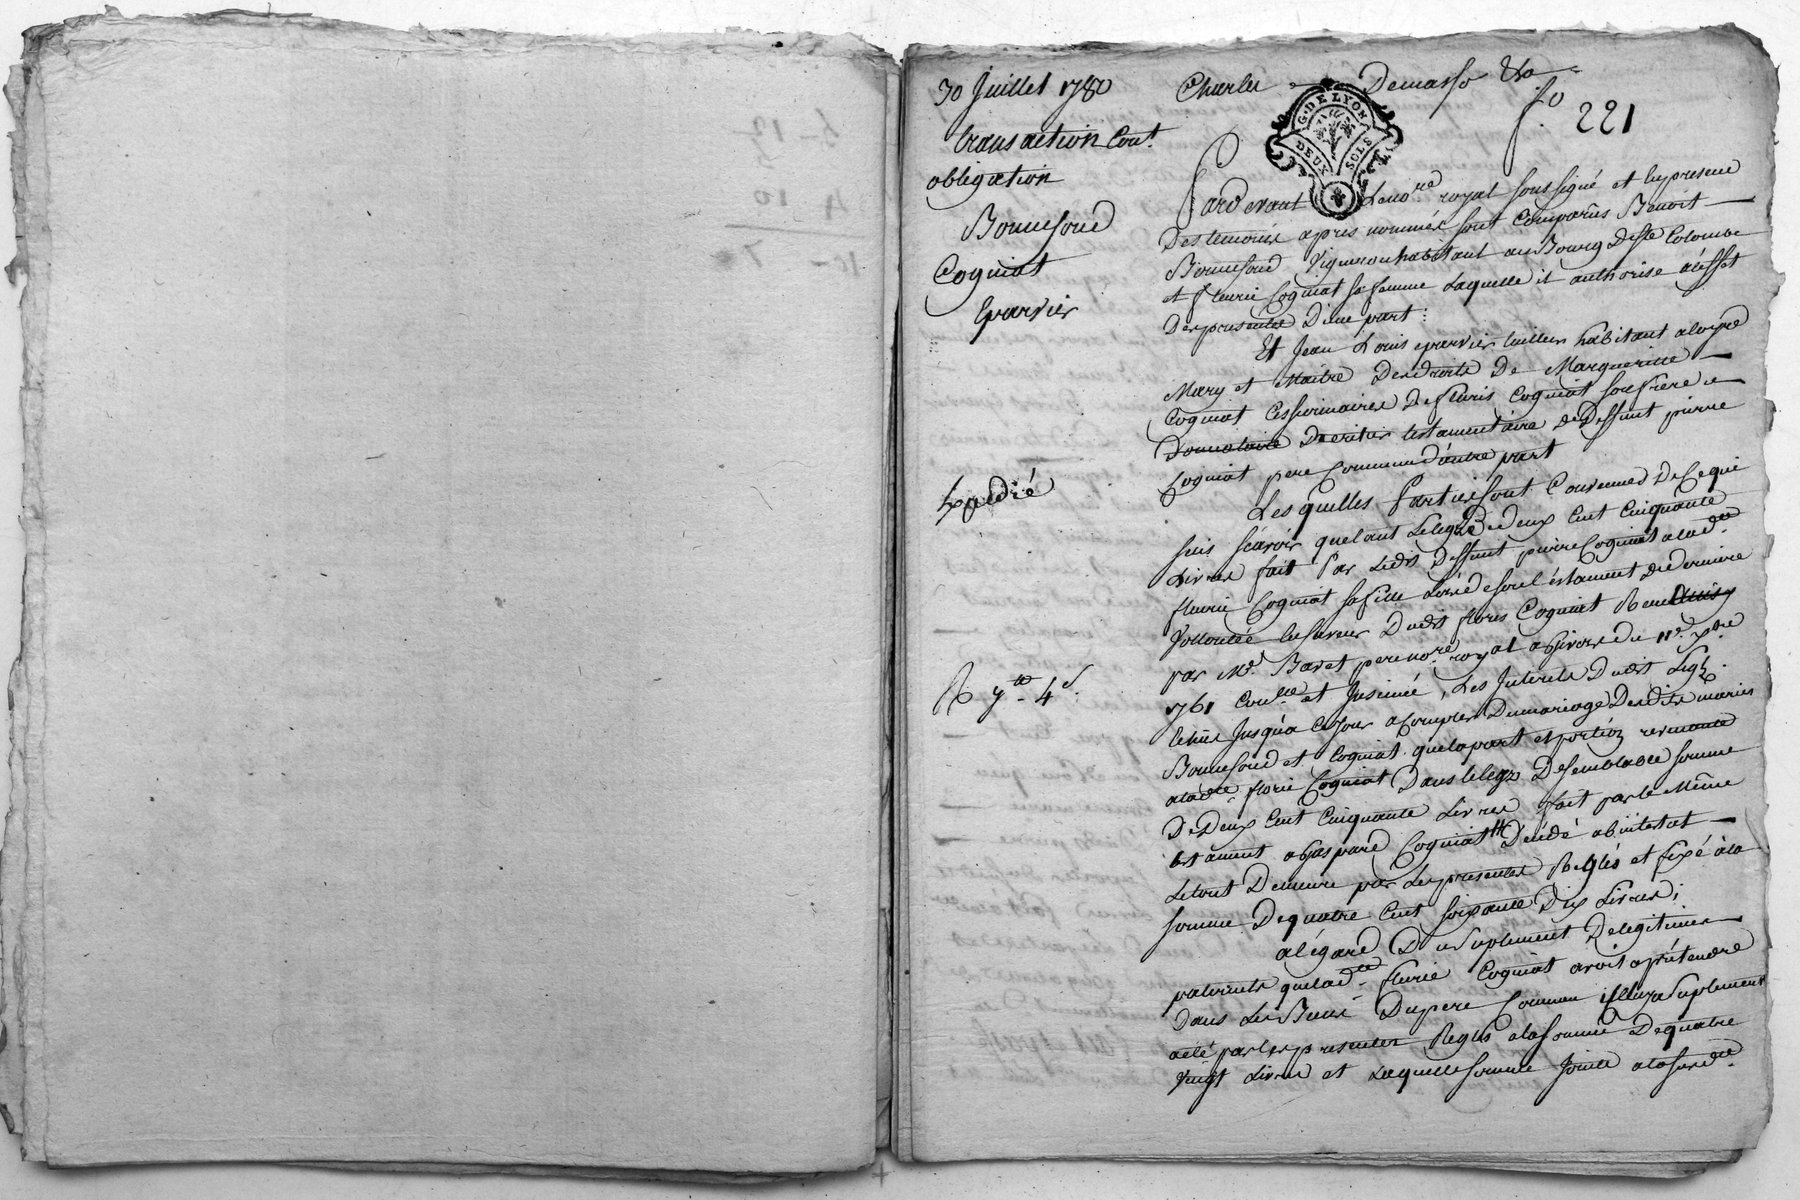 30 Juillet 1780
transaction Cont.
obligation
Bonnefond
Cogniat
Eparvier
Expedié
R 7 tt 4 s
Charles Demasso &a
f.o 221
G. DE LYON
DEUX SOLS
Pardevant Le no.re royal soussigné et en presence
Des temoins apres nommés sont Comparus Benoit
Bonnefond Vigneron habitant au Bourg de Ste Colombe
et fleurie Cogniat sa femme Laquelle il authorise a l'effet
Des presentes D'une part :
Et Jean Louis eparvier habitant a
Mary et Maitre Des droits De Margueritte
Cogniat Cessionnaires De fleuris Cogniat son frere
Donnataire heritier testamentaire de Deffunt pierre
Cogniat pere Commun d'autre part
Les quelles Parties sont Convenues De Ce qui
suis scavoir que tant Le legs de deux Cent Cinquante
Livres fait Par Ledit Deffunt pierre Cogniat a lad.te
fleurie Cogniat sa fille dans son testament de derniere
Vollonté en faveur Dudit fleuris Cogniat Receu
par M.e Bavet pere no.re royal a Givors Du 11e xbre
1761 Con.llé et Insinué, Les Interets Dudit Legs
Jusqu'a Ce Jour a Compter Du mariage Desdits maries
Bonnefond et Cogniat que la part et portion revenante
a lad.te florie Cogniat Dans le legs De semblable somme
De Deux Cent Cinquante Livres fait par le Même
testament a Gaspard Cogniat Décédé abintestat
Le tout Demeure par Les presentes Reglés et fixé a la
somme De quatre Cent soixante Dix Livres ;
a l'égard Du suplement De legitime
paternels que lad.te fleurie Cogniat avoit a prétendre
Dans Les Biens Du pere Commun suplement
a eté par les presentes Reglés a la somme De quatre
Vingt Livres et Laquelle somme Jointe a la susd.te